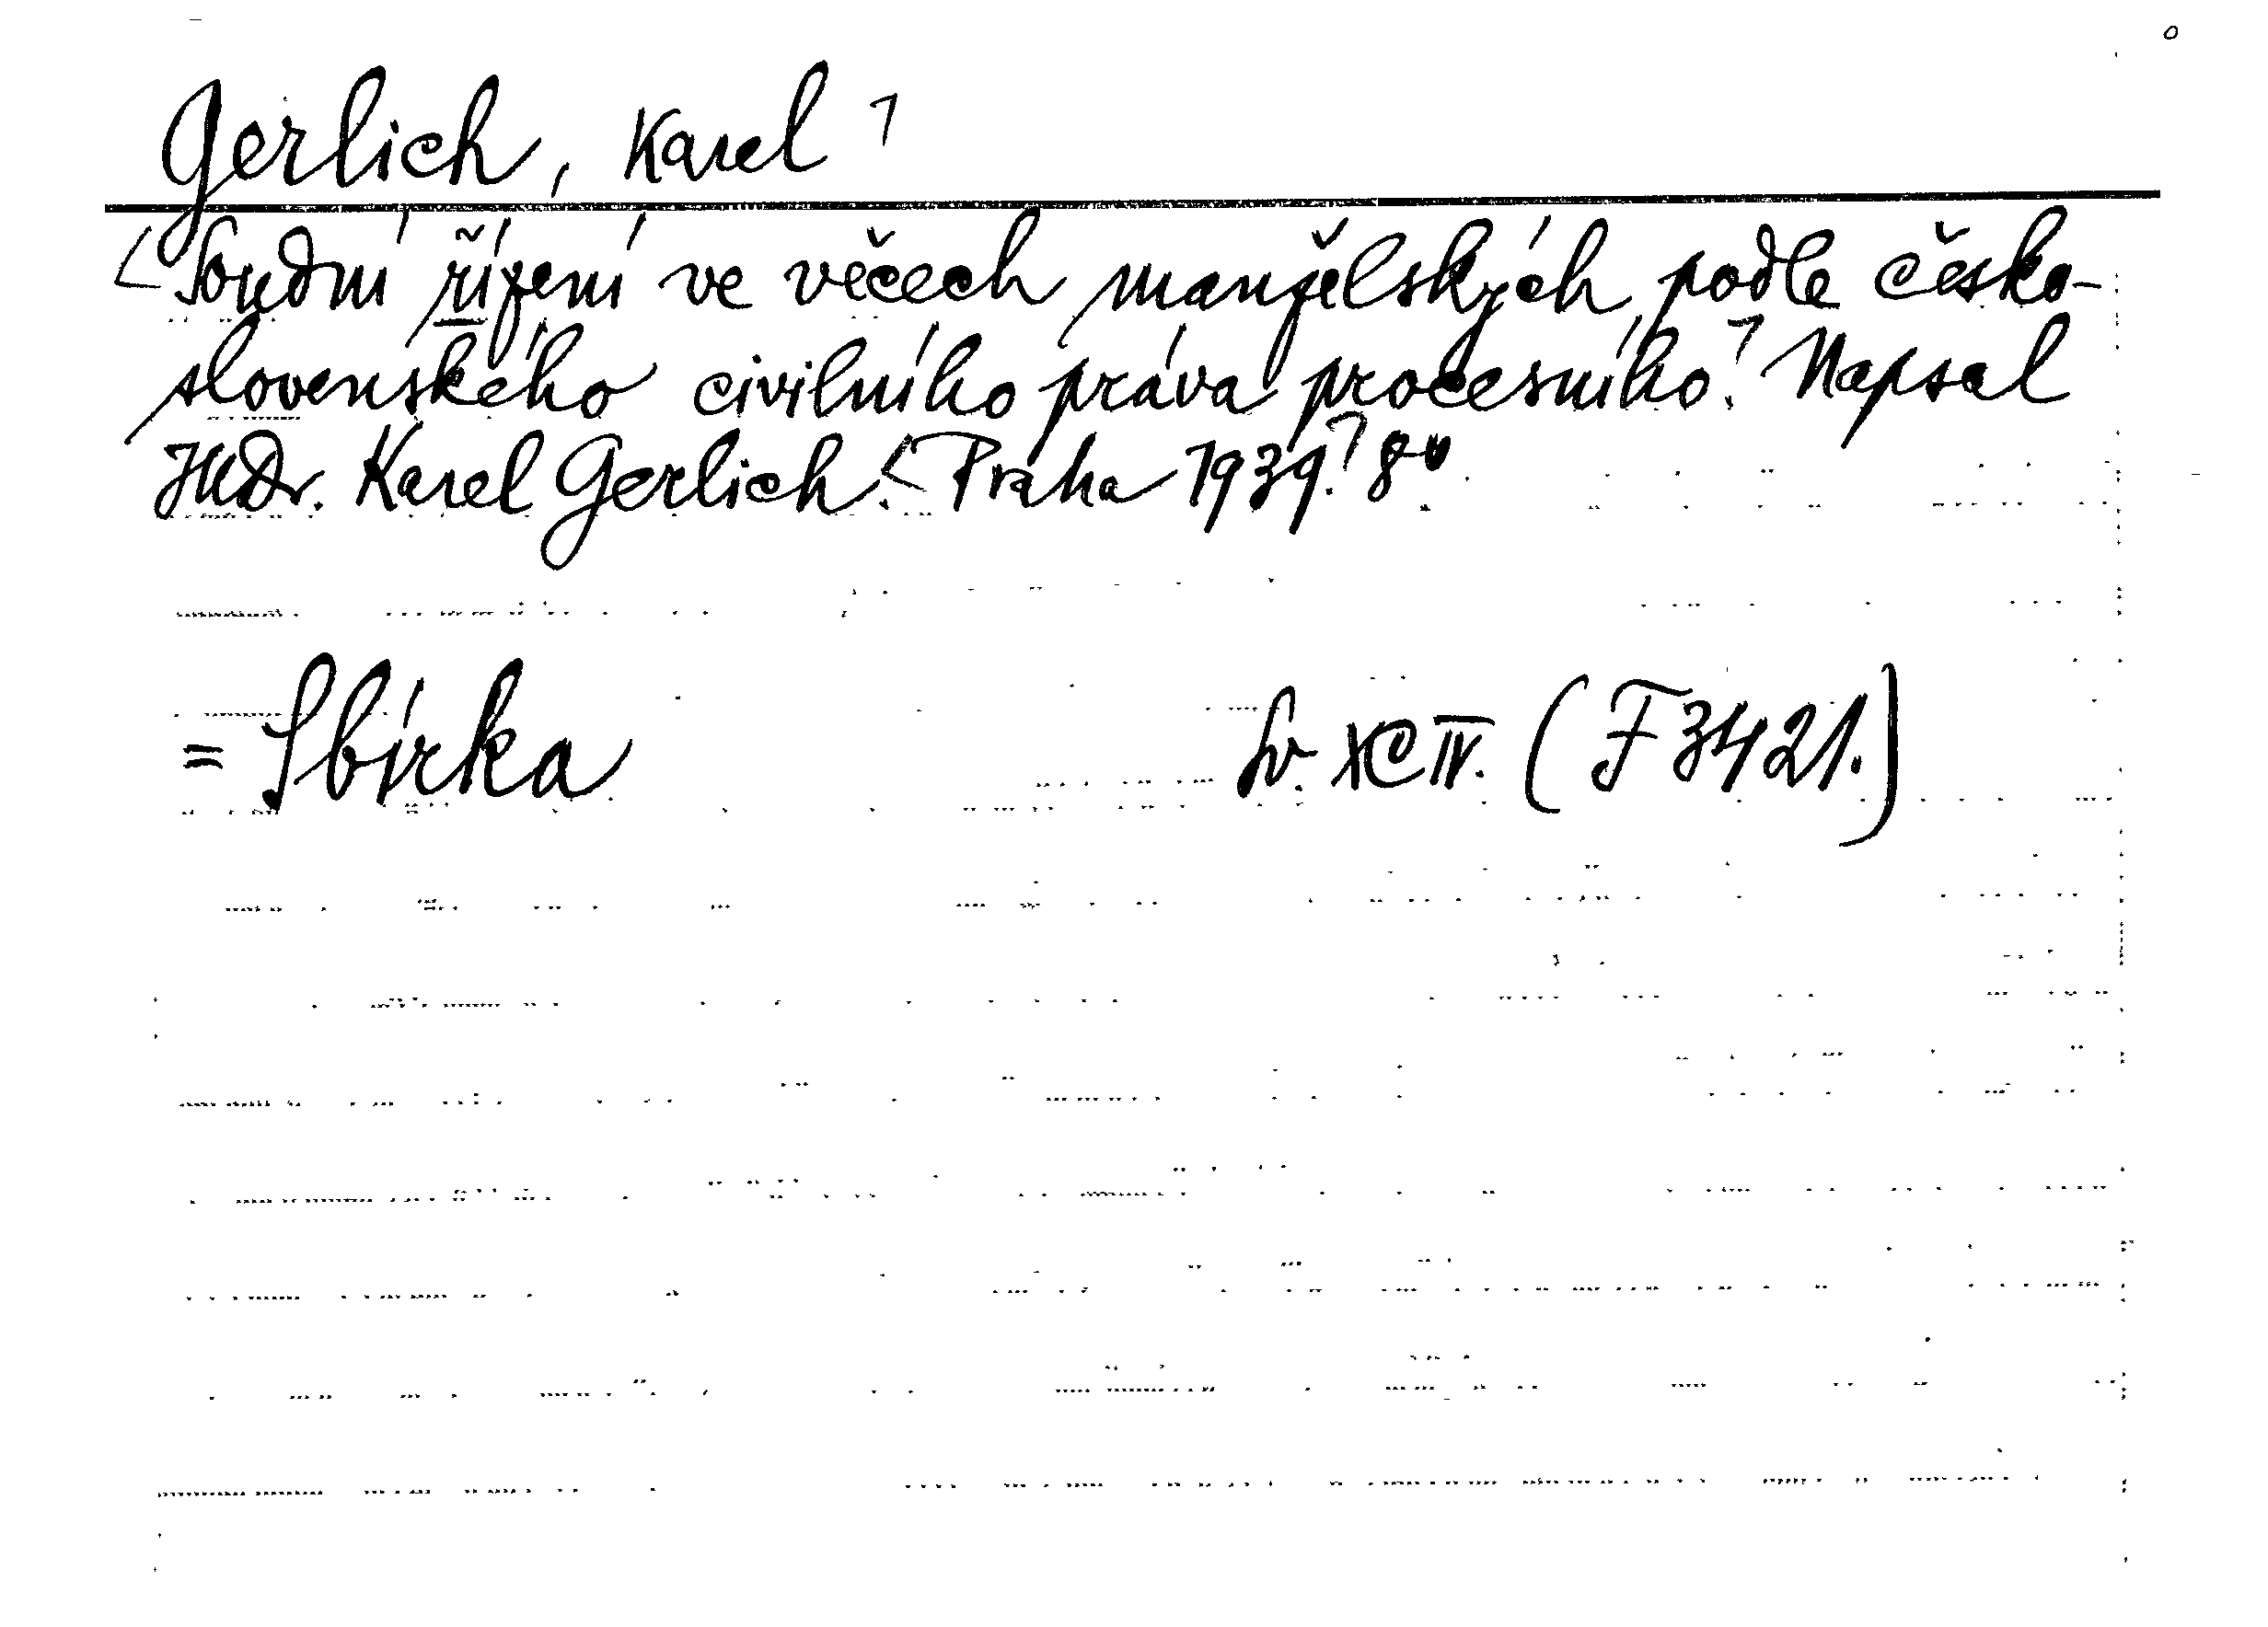 Gerlich, Karel
Soudní řízení ve věcech manželských podle česko-
slovenského civilního práva procesního. Napsal
JUDr. Karel Gerlich. Praha 1939. 8°
= Sbírka Sv. XCIV. (F 3421.)